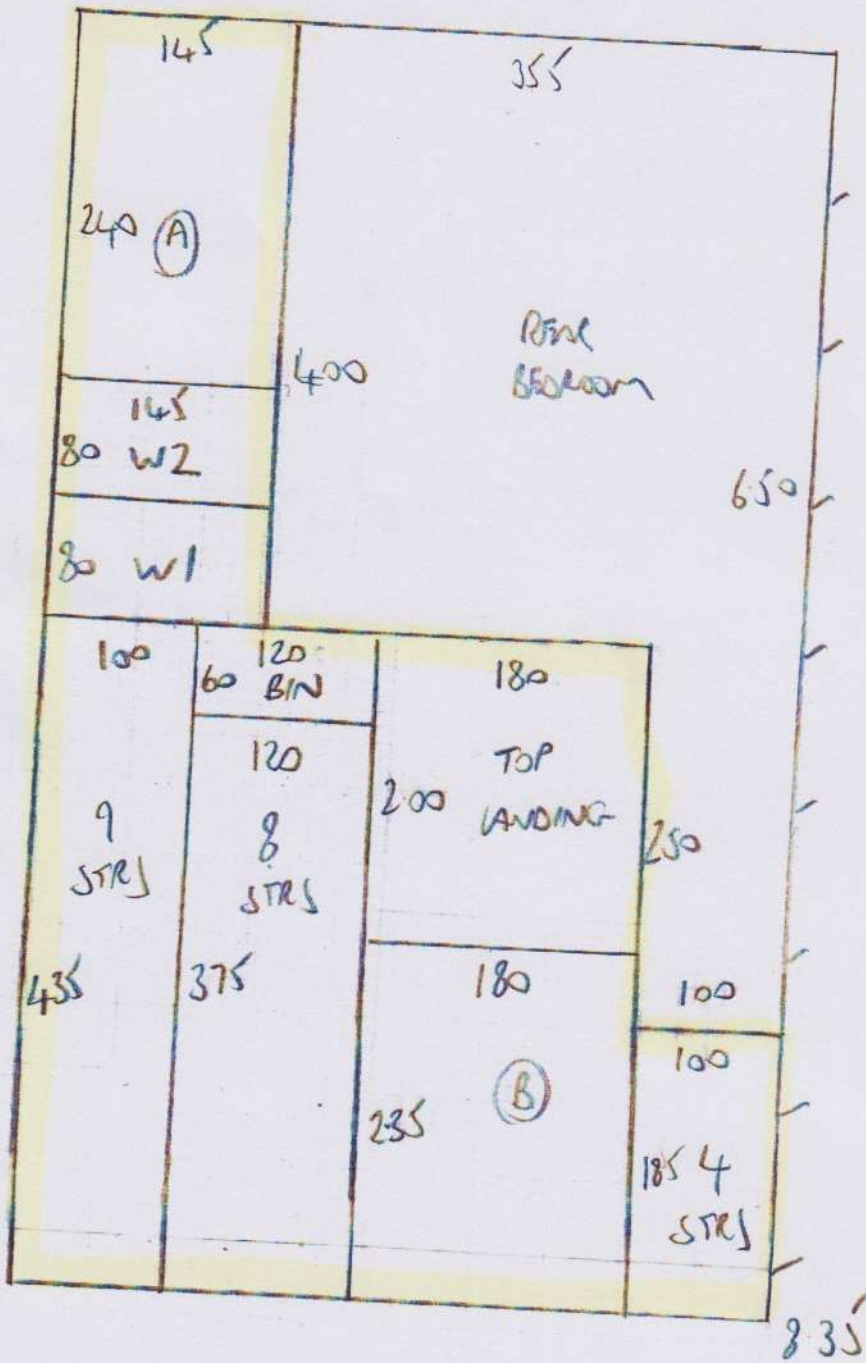 145
355
240 A
REAR
BEDROOM
400
145
80 W2
650
80 W1
100
120
60 BIN
180
120
TOP
LANDING
200
9
STRS
8
STRS
250
435
375
180
100
100
B
235
185 4
STRS
8.35